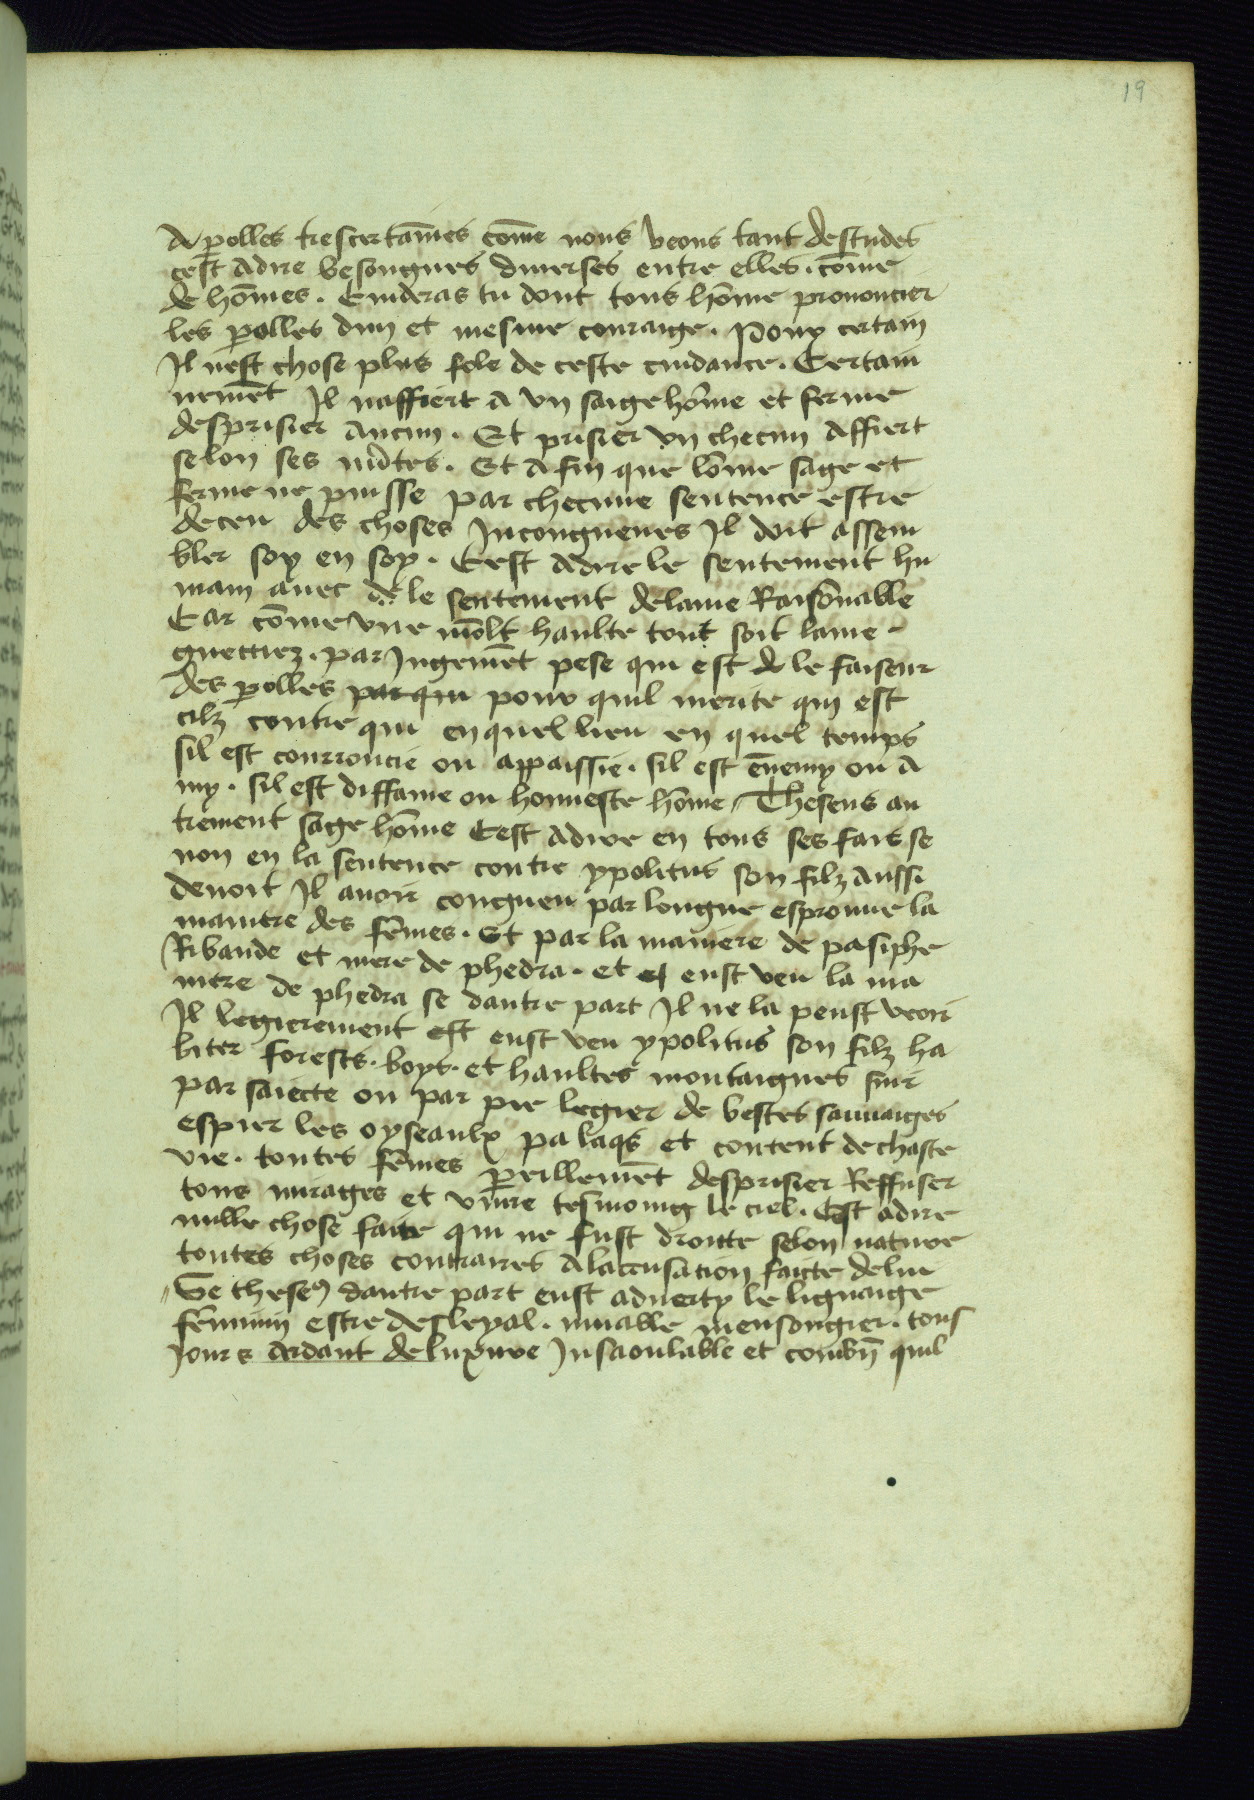 19
A polles trescertames cōme nous veons tant destudes
cest adire besongnes diuerses entre elles . cōme
de hōmes . Cuideras tu dont tous hōme prononcier
les polles dun et mesme couraige . Pour certain
Il nest chose plus fole de ceste cuidance . Certain
nemēt Il naffiert a vn saige hōme et ferme
desprisier aucun . Et prisier vn checun affiert
selon ses . Et afin que lōme sage et
ferme ne puisse par checune sentence estre
deceu des choses Incongneues Il doit assem
bler soy en soy . Cest adire le sentement hu
main auec de le sentement delame Raisōnable
Car cōme vne mōlt haulte tout soit lame
guettiez . par Jugemēt pese qui est de le faiseur
des polles par qui pour quil merite qui est
cilz contre qui en quel lieu en quel temps
sil est courroucie ou appaissie . sil est ēnemy ou a
my . sil est diffame ou honneste hōme / Theseus au
trement sage hōme Cest adire en tous ses fais se
non en la sentence contre ypolitus son filz aussi
deuoit Il auoir congneu par longue esprouue la
maniere des fēmes . Et par la maniere de pasiphe
Ribaude et mere de phedra . et eust veu la ma
niere de phedra se dautre part Il ne la peust veoir
Il legierement est eust veu ypolitus son filz ha
biter forests . boys . et haultes montaignes suir
par saiecte ou par pie legier de bestes sauuaiges
espier les oyseaulx pa laqs et content de chaste
vie . toutes fēmes perillemēt desprisier Reffuser
tous mirages et viure tesmoing le ciel . Cest adire
nulle chose faite qui ne fust droitte selon nature
toutes choses contraires a laccusacion faicte delui
Se theseus dautre part eust aduerty le lignaige
fēminin estre desleyal . muable mensongier . tous
Jours ardant de luxure Insaoulable et combn̄ quil